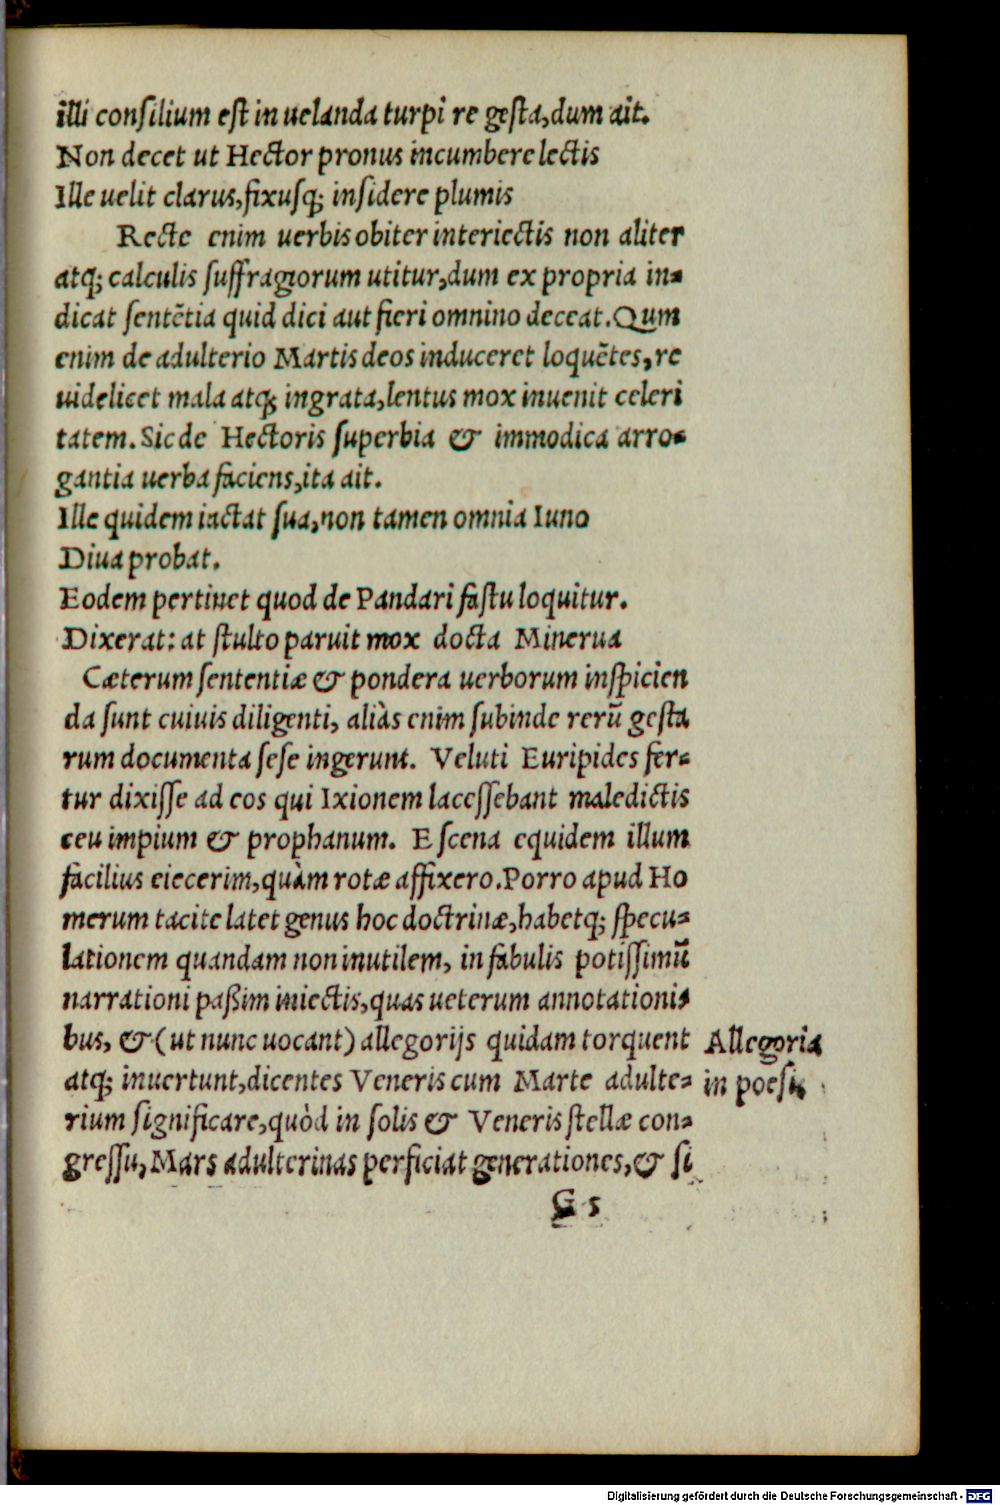 illi consilium est in uelanda turpi re gesta, dum ait.
Non decet ut Hector pronus incumbere lectis
Ille uelit clarus, fixusq; insidere plumis
Recte enim uerbis obiter interiectis non aliter
atq; calculis suffragiorum utitur, dum ex propria in-
dicat sentētia quid dici aut fieri omnino deceat. Qum
enim de adulterio Martis deos induceret loquētes, re
uidelicet mala atq; ingrata, lentus mox inuenit celeri
tatem. Sic de Hectoris superbia & immodica arro-
gantia uerba faciens, ita ait.
Ille quidem iactat sua, non tamen omnia Iuno
Diua probat.
Eodem pertinet quod de Pandari fastu loquitur.
Dixerat: at stulto paruit mox docta Minerua
Cæterum sententiæ & pondera uerborum inspicien
da sunt cuiuis diligenti, aliàs enim subinde rerū gesta
rum documenta sese ingerunt. Veluti Euripides fer-
tur dixisse ad eos qui Ixionem lacessebant maledictis
ceu impium & prophanum. E scena equidem illum
facilius eiecerim, quàm rotæ affixero. Porro apud Ho
merum tacite latet genus hoc doctrinæ, habetq; specu-
lationem quandam non inutilem, in fabulis potissimū
narrationi paßim iniectis, quas ueterum annotationi
bus, & (ut nunc uocant) allegorijs quidam torquent
atq; inuertunt, dicentes Veneris cum Marte adulte-
rium significare, quòd in solis & Veneris stellæ con-
gressu, Mars adulterinas perficiat generationes, & si
Allegoria
in poesi
G 5
Digitalisierung gefördert durch die Deutsche Forschungsgemeinschaft - DFG